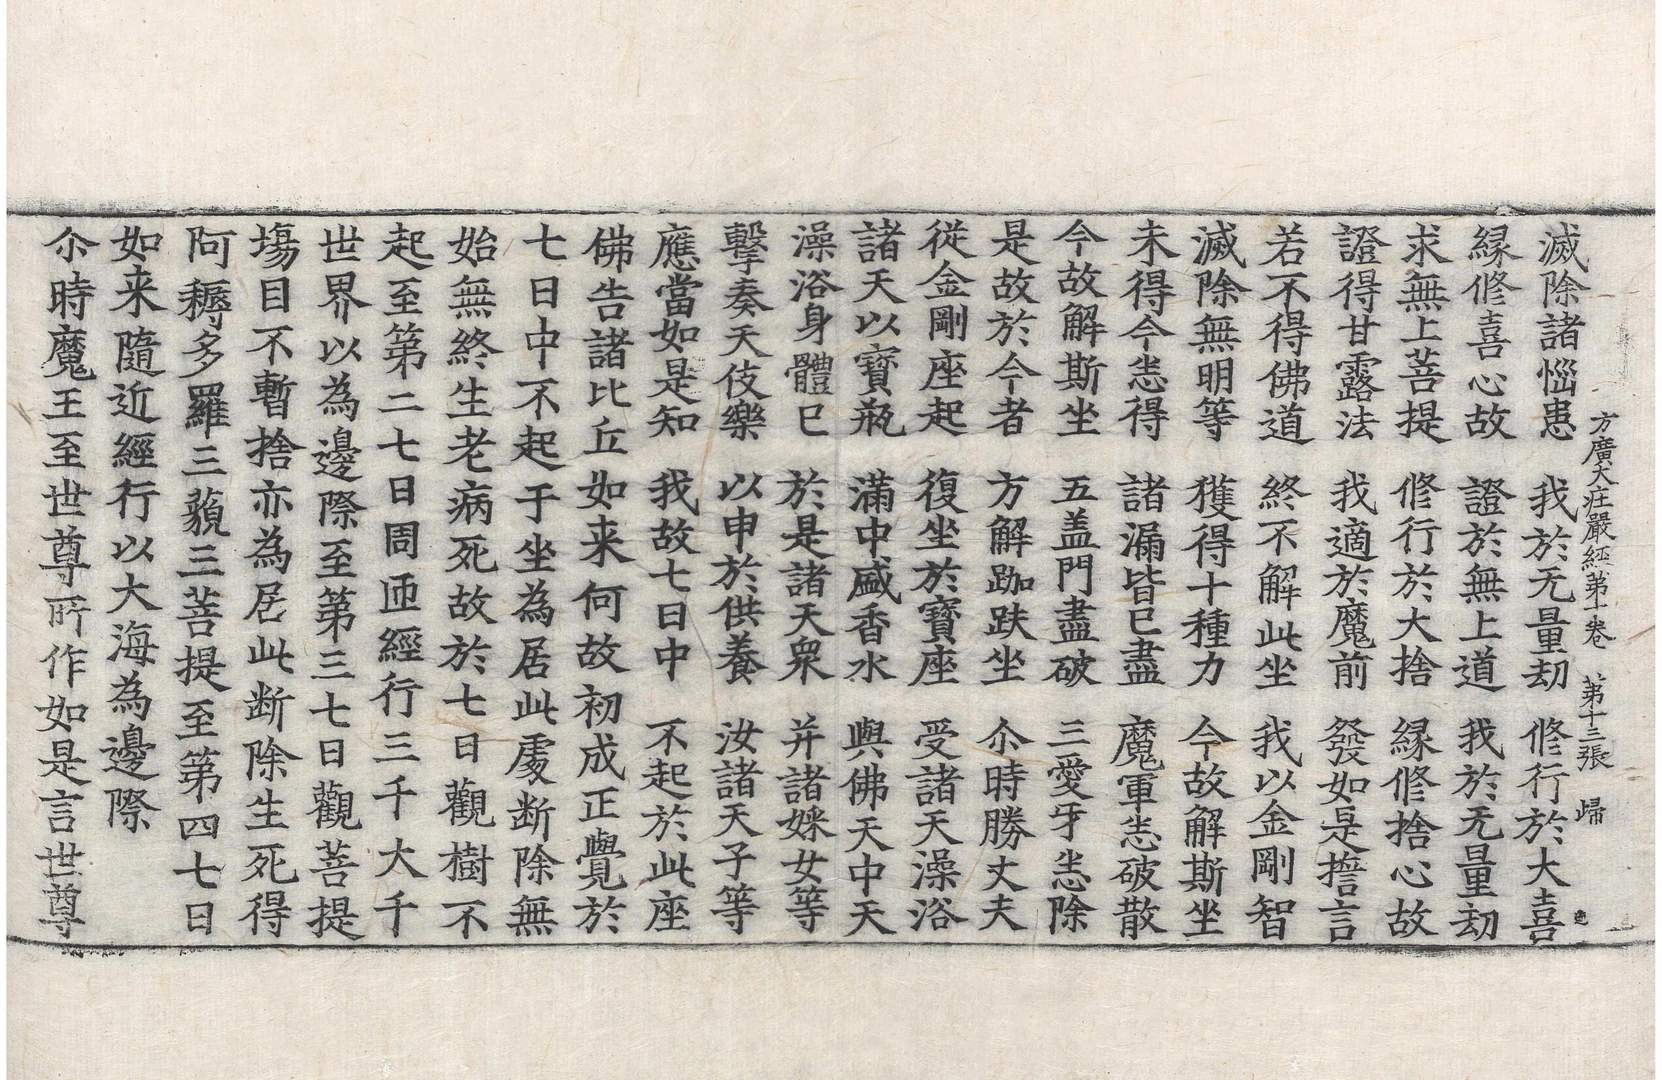 方廣大莊嚴經第十卷　第十三張　歸
滅除諸惱患　我於无量劫　修行於大喜
縁修喜心故　證於無上道　我於无量劫
求無上菩提　修行於大捨　縁修捨心故
證得甘露法　我適於魔前　發如是誓言
若不得佛道　終不解此坐　我以金剛智
滅除無明等　獲得十種力　今故解斯坐
未得今恙得　諸漏皆已盡　魔軍恙破散
今故解斯坐　五盖門盡破　三愛牙恙除
是故於今者　方解跏趺坐　尒時勝丈夫
從金剛座起　復坐於寶座　受諸天澡浴
諸天以寶瓶　滿中盛香水　與佛天中天
澡浴身體已　於是諸天眾　并諸婇女等
擊奏天伎樂　以申於供養　汝諸天子等
應當如是知　我故七日中　不起於此座
佛告諸比丘如来何故初成正覺於
七日中不起于坐為居此處断除無
始無終生老病死故於七日觀樹不
起至第二七日周匝經行三千大千
世界以為邊際至第三七日觀菩提
場目不暫捨亦為居此断除生死得
阿耨多羅三藐三菩提至第四七日
如来隨近經行以大海為邊際
尒時魔王至世尊所作如是言世尊